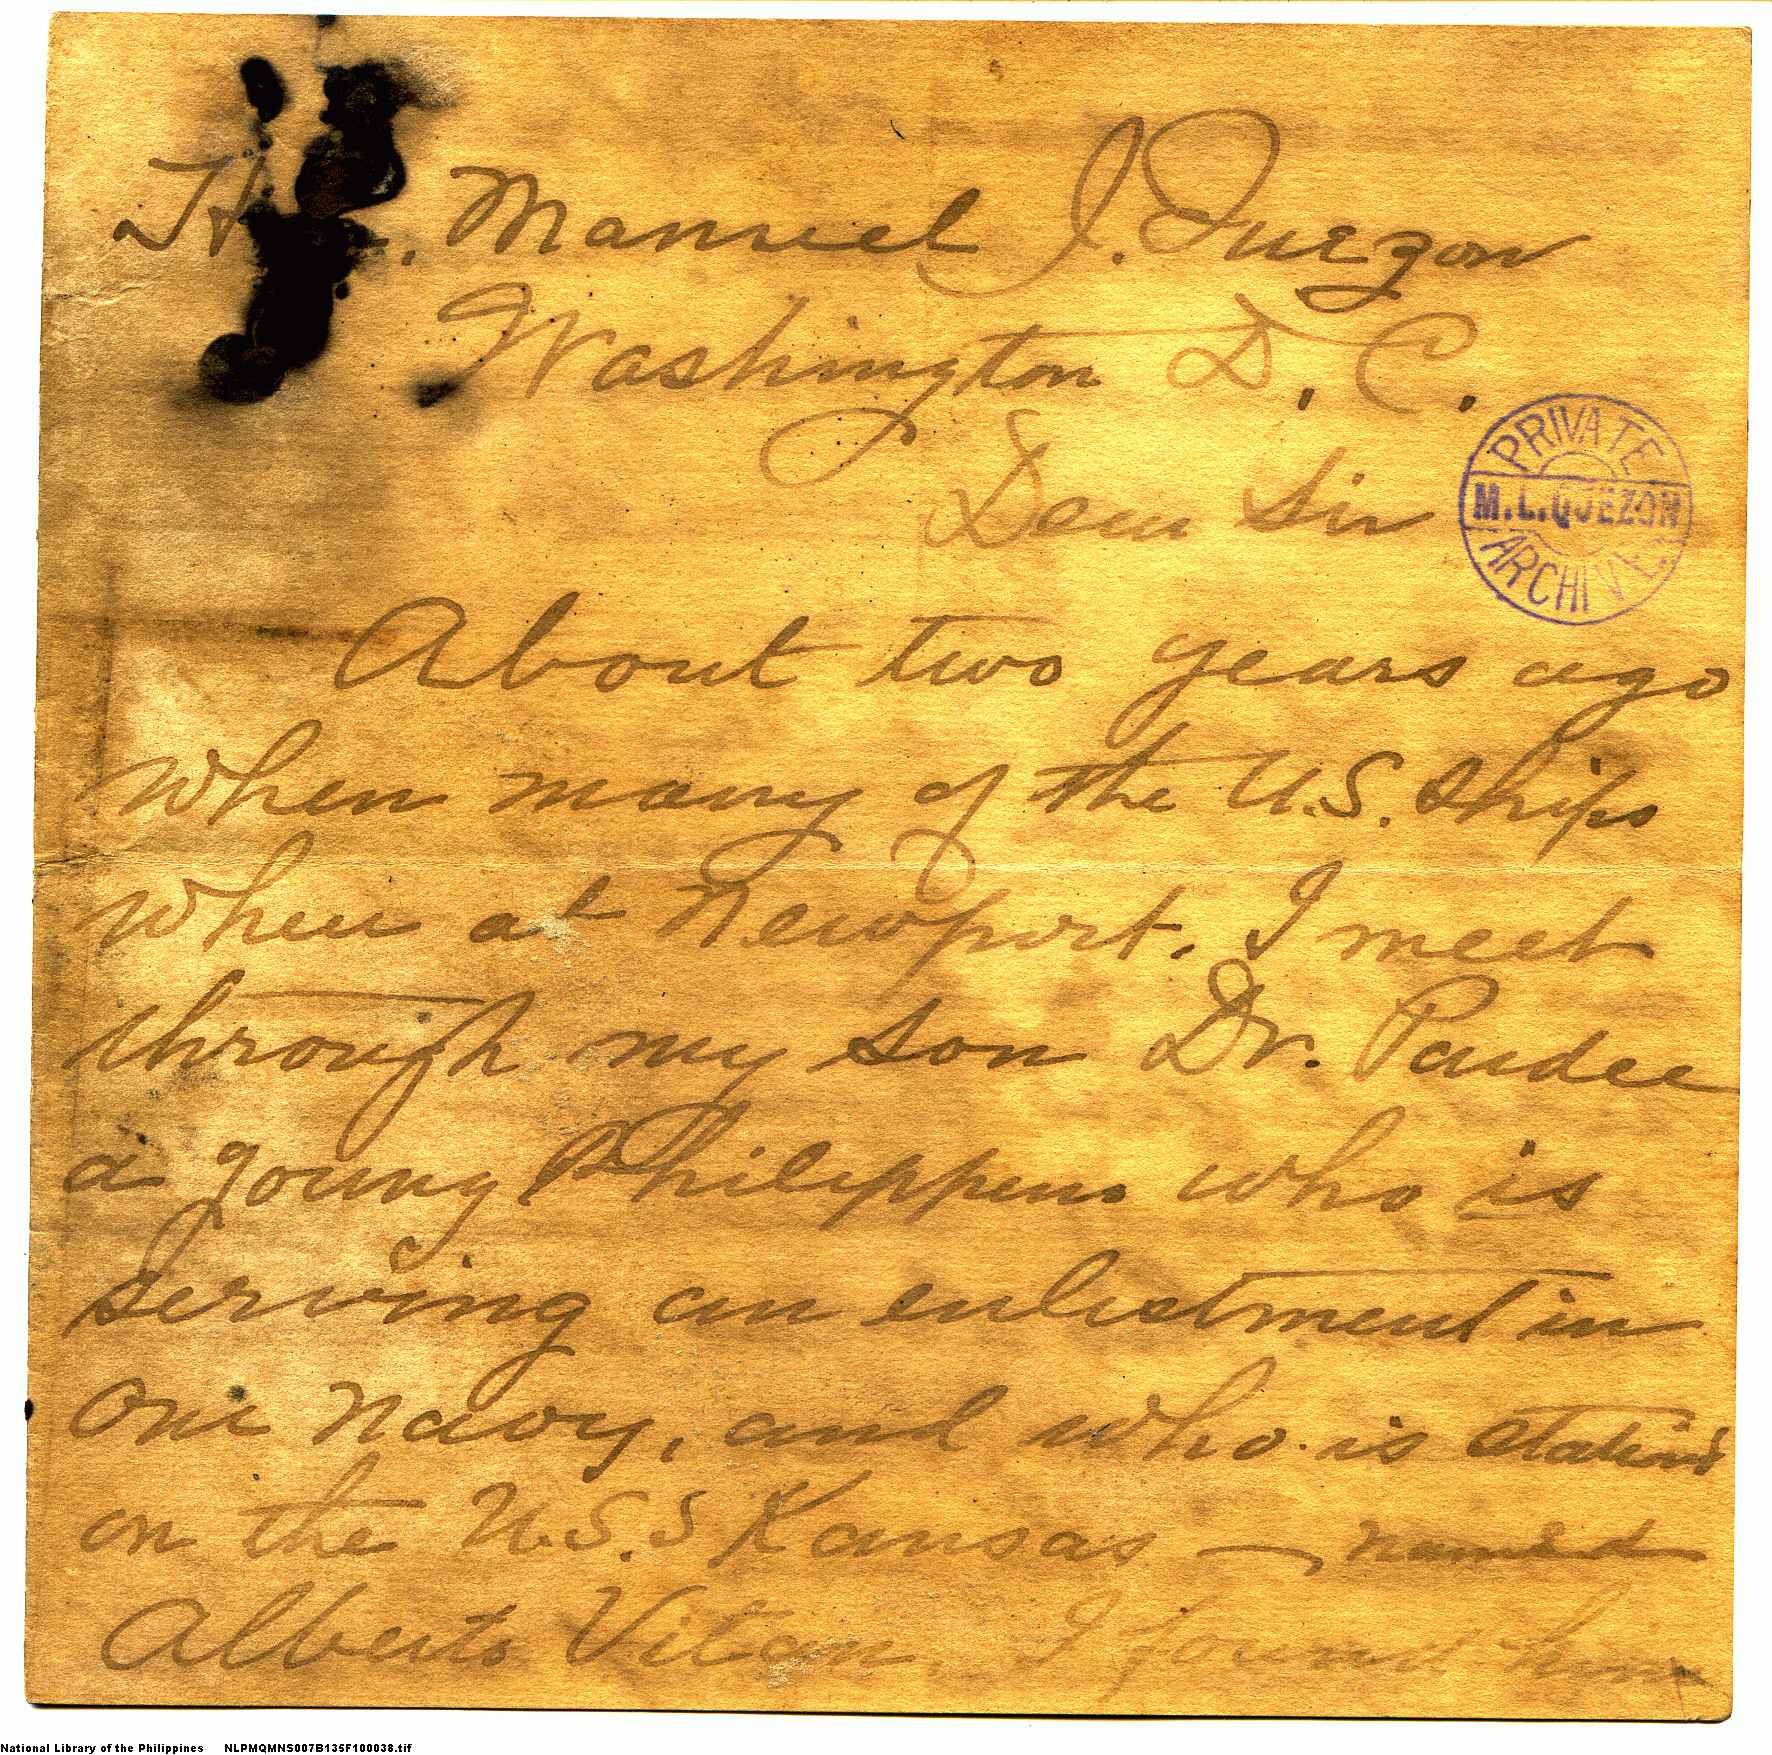 H . Manuel J. Quezon
Washington D. C.
Dear Sir
PRIVATE
M.L.QUEZON
ARCHIVE
About two years ago
when many of the U.S. ships
when at Newport. I meet
through my son Dr. Pardee
a young Philippeno who is
serving an enlistment in
our Navy, and who is
on the U.S.S Kansas — named
Alberto Vitan. I found him
National Library of the Philippines NLPMQMNS007B135F100038.tif